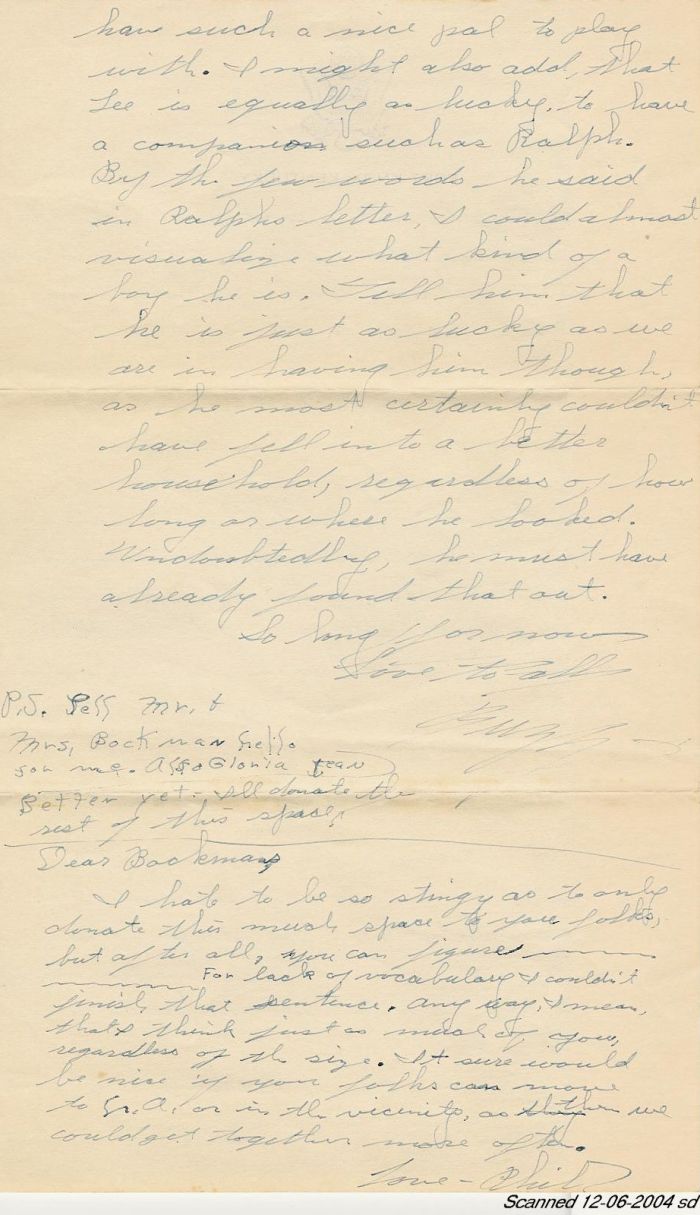 have such a nice pal to play
with. I might also add, that
Lee is equally as lucky, to have
a companion such as Ralph.
By the few words he said
in Ralphs letter, I could almost
visualize what kind of a
boy he is. Tell him that
he is just as lucky as we
are in having him though,
as he most certainly couldn't
have fell into a better
household, regardless of how
long or where he looked.
Undoubtedly, he must have
already found that out.
So long for now
Love to all
P.S. Tell Mr. &
Mrs. Bockman hello
for me. Also Gloria Jean
Better yet - I'll donate the
rest of this space.
Dear Bockmans
I hate to be so stingy as to only
donate this much space to you folks,
but after all, you can figure
For lack of vocabulary I couldn't
finish that sentence. Any way, I mean,
that I think just as much of you,
regardless of the size. It sure would
be nice if you folks can move
to Gr. A. or in the vicinity, as then we
could get together more often.
Love - Phil
Scanned 12-06-2004 sd